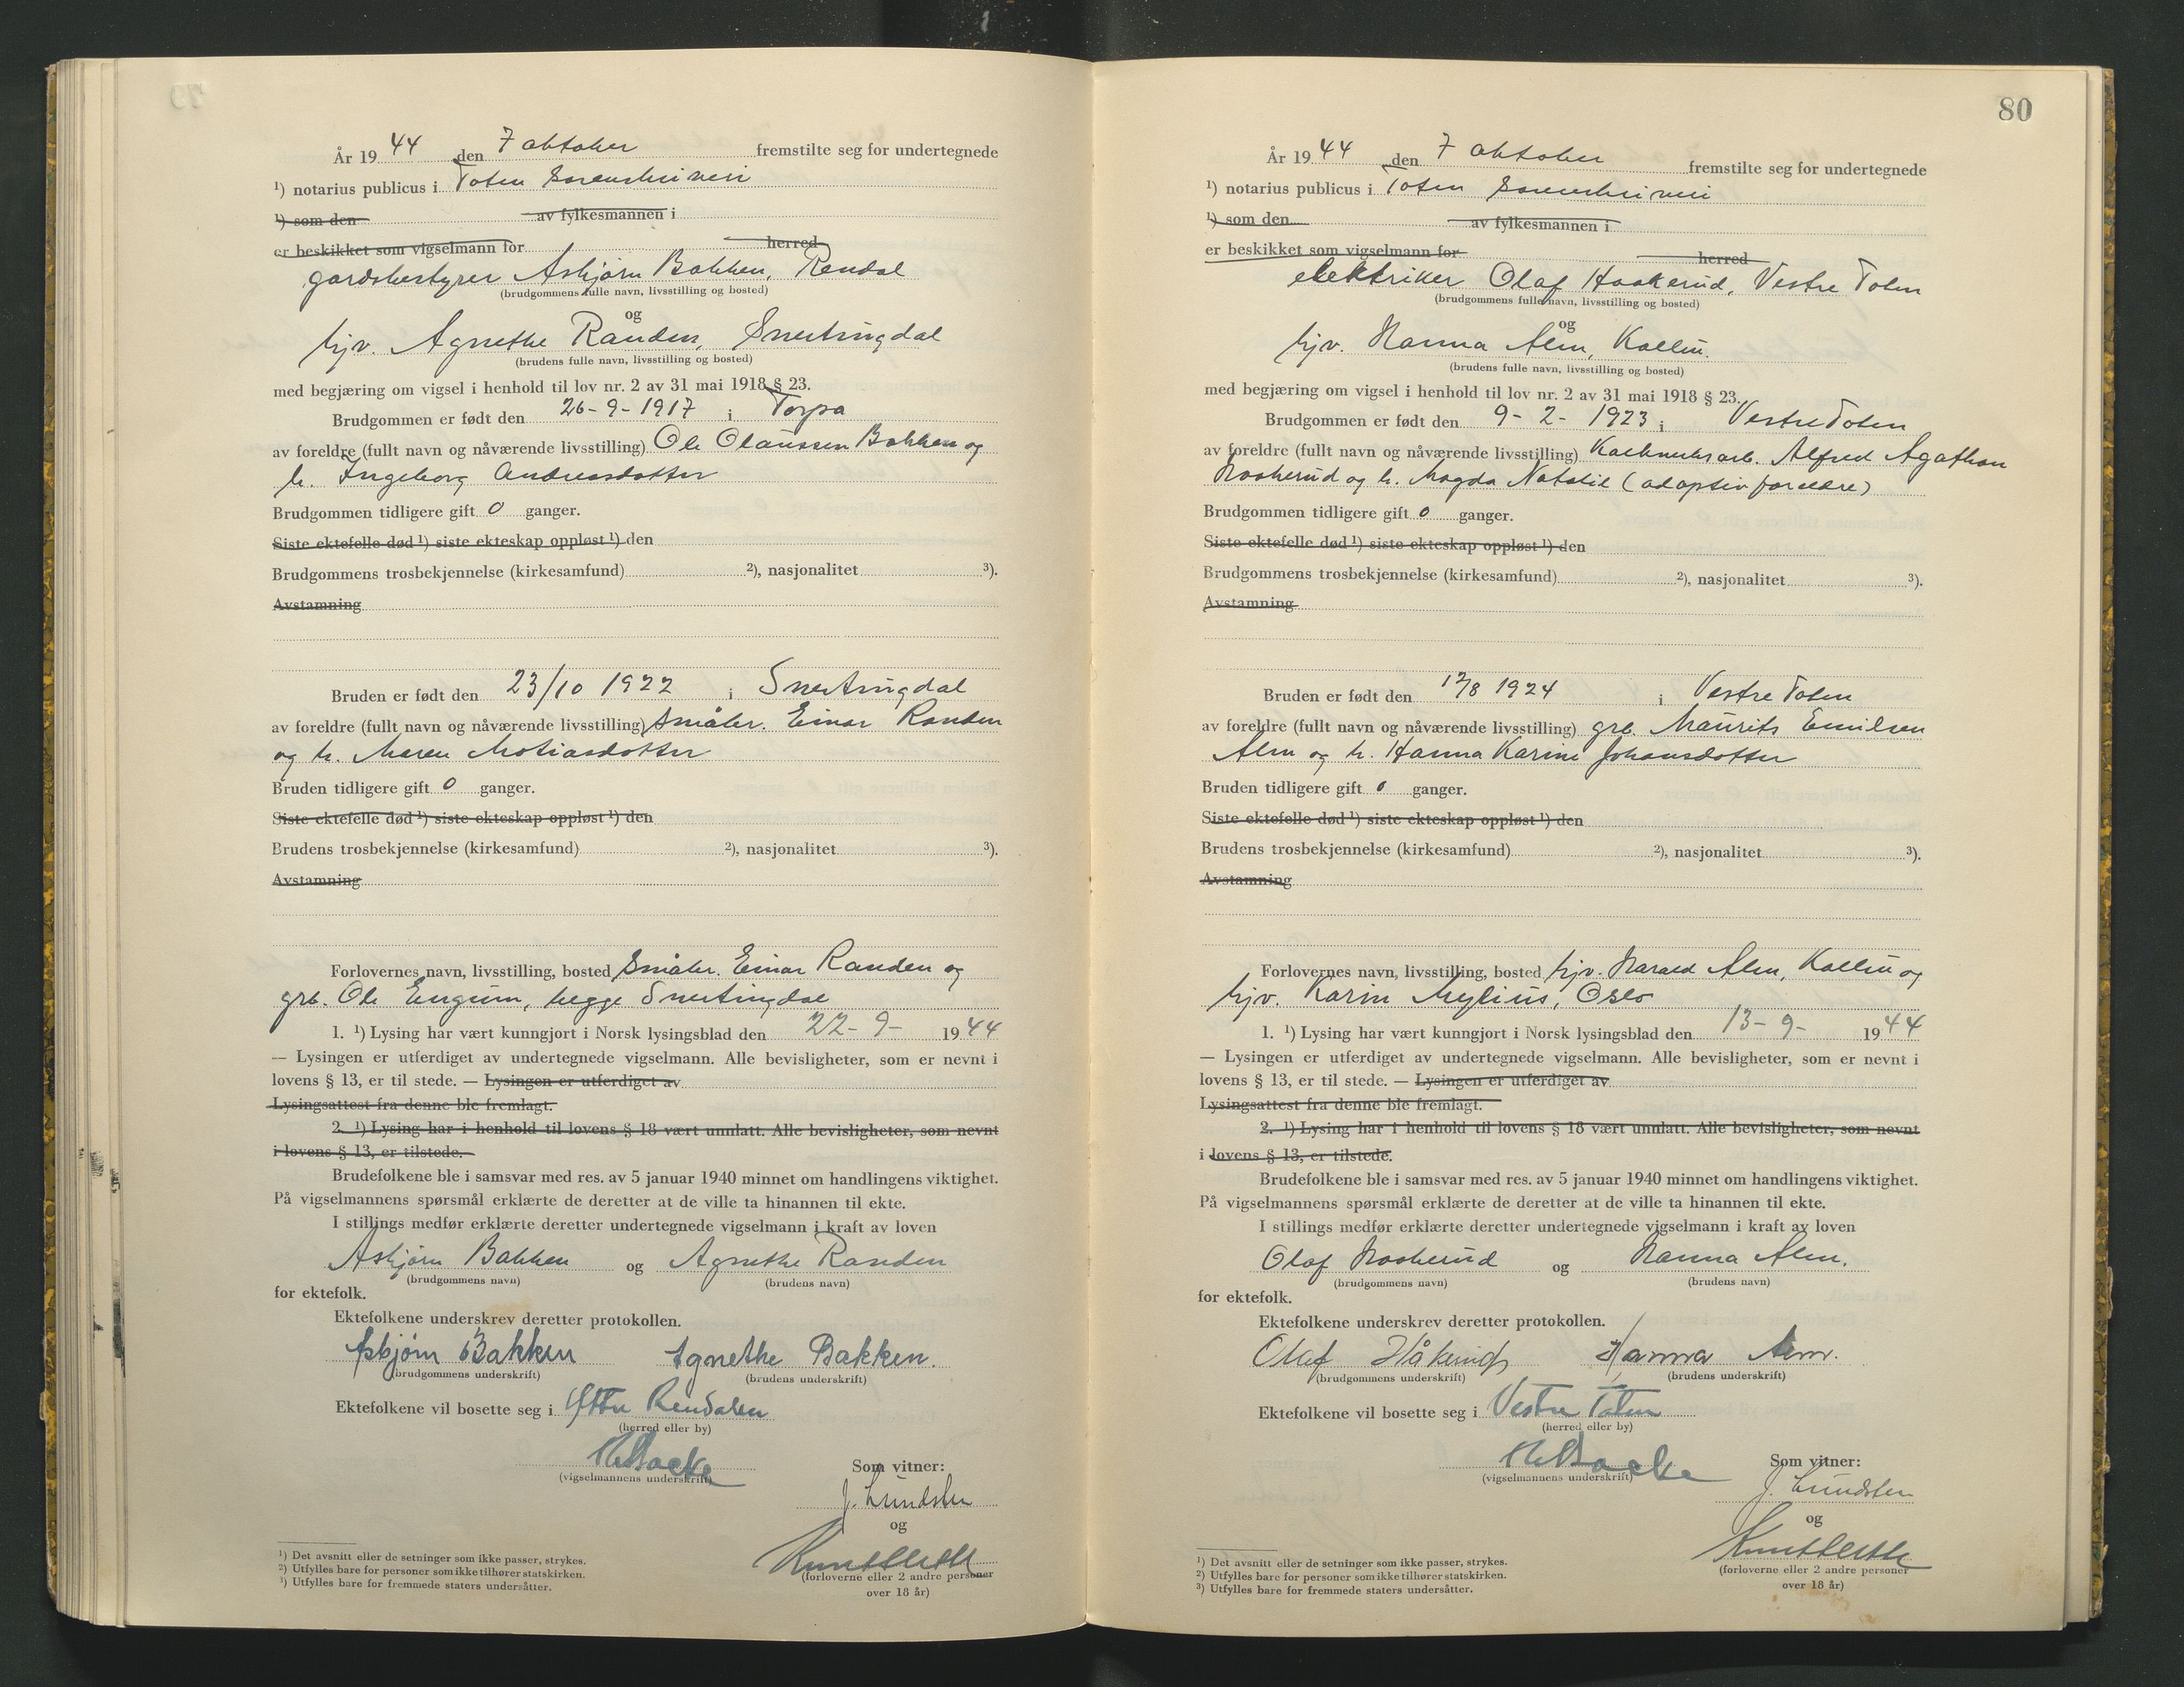 År 19 44 den 7 oktober fremstilte seg for undertegnede
¹) notarius publicus i Toten Sorenskriveri
¹) som den av fylkesmannen i
er beskikket som vigselmann for herred
gardsbestyrer Asbjørn Bakken, Rendal
(brudgommens fulle navn, livsstilling og bosted)
og
hjv. Agnethe Randen, Snertingdal
(brudens fulle navn, livsstilling og bosted)
med begjæring om vigsel i henhold til lov nr. 2 av 31 mai 1918 § 23.
Brudgommen er født den 26-9-1917 i Torpa
av foreldre (fullt navn og nåværende livsstilling) Ole Olaussen Bakken og
h. Ingeborg Andreasdotter
Brudgommen tidligere gift 0 ganger.
Siste ektefelle død ¹) siste ekteskap oppløst ¹) den
Brudgommens trosbekjennelse (kirkesamfund) ²), nasjonalitet ³).
Avstamning
Bruden er født den 23/10 1922 i Snertingdal
av foreldre (fullt navn og nåværende livsstilling) småbr. Einar Randen
og h. Maren Matiasdotter
Bruden tidligere gift 0 ganger.
Siste ektefelle død ¹) siste ekteskap oppløst ¹) den
Brudens trosbekjennelse (kirkesamfund) ²), nasjonalitet ³).
Avstamning
Forlovernes navn, livsstilling, bosted Småbr. Einar Randen og
grb. Ole Engum, begge Snertingdal
1. ¹) Lysing har vært kunngjort i Norsk lysingsblad den 22-9- 1944
— Lysingen er utferdiget av undertegnede vigselmann. Alle bevisligheter, som er nevnt i
lovens § 13, er til stede. — Lysingen er utferdiget av
Lysingsattest fra denne ble fremlagt.
2. ¹) Lysing har i henhold til lovens § 18 vært unnlatt. Alle bevisligheter, som nevnt
i lovens § 13, er tilstede.
Brudefolkene ble i samsvar med res. av 5 januar 1940 minnet om handlingens viktighet.
På vigselmannens spørsmål erklærte de deretter at de ville ta hinannen til ekte.
I stillings medfør erklærte deretter undertegnede vigselmann i kraft av loven
Asbjørn Bakken og Agnethe Randen
(brudgommens navn) (brudens navn)
for ektefolk.
Ektefolkene underskrev deretter protokollen.
Asbjørn Bakken Agnethe Bakken.
(brudgommens underskrift) (brudens underskrift)
Ektefolkene vil bosette seg i Yttre Rendalen
(herred eller by)
(vigselmannens underskrift) Som vitner:
J. Lundsten
og
(forloverne eller 2 andre personer
over 18 år)
¹) Det avsnitt eller de setninger som ikke passer, strykes.
²) Utfylles bare for personer som ikke tilhører statskirken.
³) Utfylles bare for fremmede staters undersåtter.
80
År 19 44 den 7 oktober fremstilte seg for undertegnede
¹) notarius publicus i Toten Sorenskriveri
¹) som den av fylkesmannen i
er beskikket som vigselmann for herred
elektriker Olaf Haakerud, Vestre Toten
(brudgommens fulle navn, livsstilling og bosted)
og
hjv. Hanna Alm, Kolbu.
(brudens fulle navn, livsstilling og bosted)
med begjæring om vigsel i henhold til lov nr. 2 av 31 mai 1918 § 23.
Brudgommen er født den 9-2-1923 i Vestre Toten
av foreldre (fullt navn og nåværende livsstilling) Kalkverksarb. Alfred Agathon
Haakerud og h. Magda Natalie (adoptivforeldre)
Brudgommen tidligere gift 0 ganger.
Siste ektefelle død ¹) siste ekteskap oppløst ¹) den
Brudgommens trosbekjennelse (kirkesamfund) ²), nasjonalitet ³).
Avstamning
Bruden er født den 12/8 1924 i Vestre Toten
av foreldre (fullt navn og nåværende livsstilling) grb. Maurits Emilsen
Alm og h. Hanna Karine Johansdotter
Bruden tidligere gift 0 ganger.
Siste ektefelle død ¹) siste ekteskap oppløst ¹) den
Brudens trosbekjennelse (kirkesamfund) ²), nasjonalitet ³).
Avstamning
Forlovernes navn, livsstilling, bosted hjv. Harald Alm, Kolbu og
hjv. Karin Mylius, Oslo
1. ¹) Lysing har vært kunngjort i Norsk lysingsblad den 13-9- 1944
— Lysingen er utferdiget av undertegnede vigselmann. Alle bevisligheter, som er nevnt i
lovens § 13, er til stede. — Lysingen er utferdiget av
Lysingsattest fra denne ble fremlagt.
2. ¹) Lysing har i henhold til lovens § 18 vært unnlatt. Alle bevisligheter, som nevnt
i lovens § 13, er tilstede.
Brudefolkene ble i samsvar med res. av 5 januar 1940 minnet om handlingens viktighet.
På vigselmannens spørsmål erklærte de deretter at de ville ta hinannen til ekte.
I stillings medfør erklærte deretter undertegnede vigselmann i kraft av loven
Olaf Haakerud og Hanna Alm.
(brudgommens navn) (brudens navn)
for ektefolk.
Ektefolkene underskrev deretter protokollen.
Olaf Håkerud Hanna Alm.
(brudgommens underskrift) (brudens underskrift)
Ektefolkene vil bosette seg i Vestre Toten
(herred eller by)
(vigselmannens underskrift) Som vitner:
J. Lundsten
og
(forloverne eller 2 andre personer
over 18 år)
¹) Det avsnitt eller de setninger som ikke passer, strykes.
²) Utfylles bare for personer som ikke tilhører statskirken.
³) Utfylles bare for fremmede staters undersåtter.